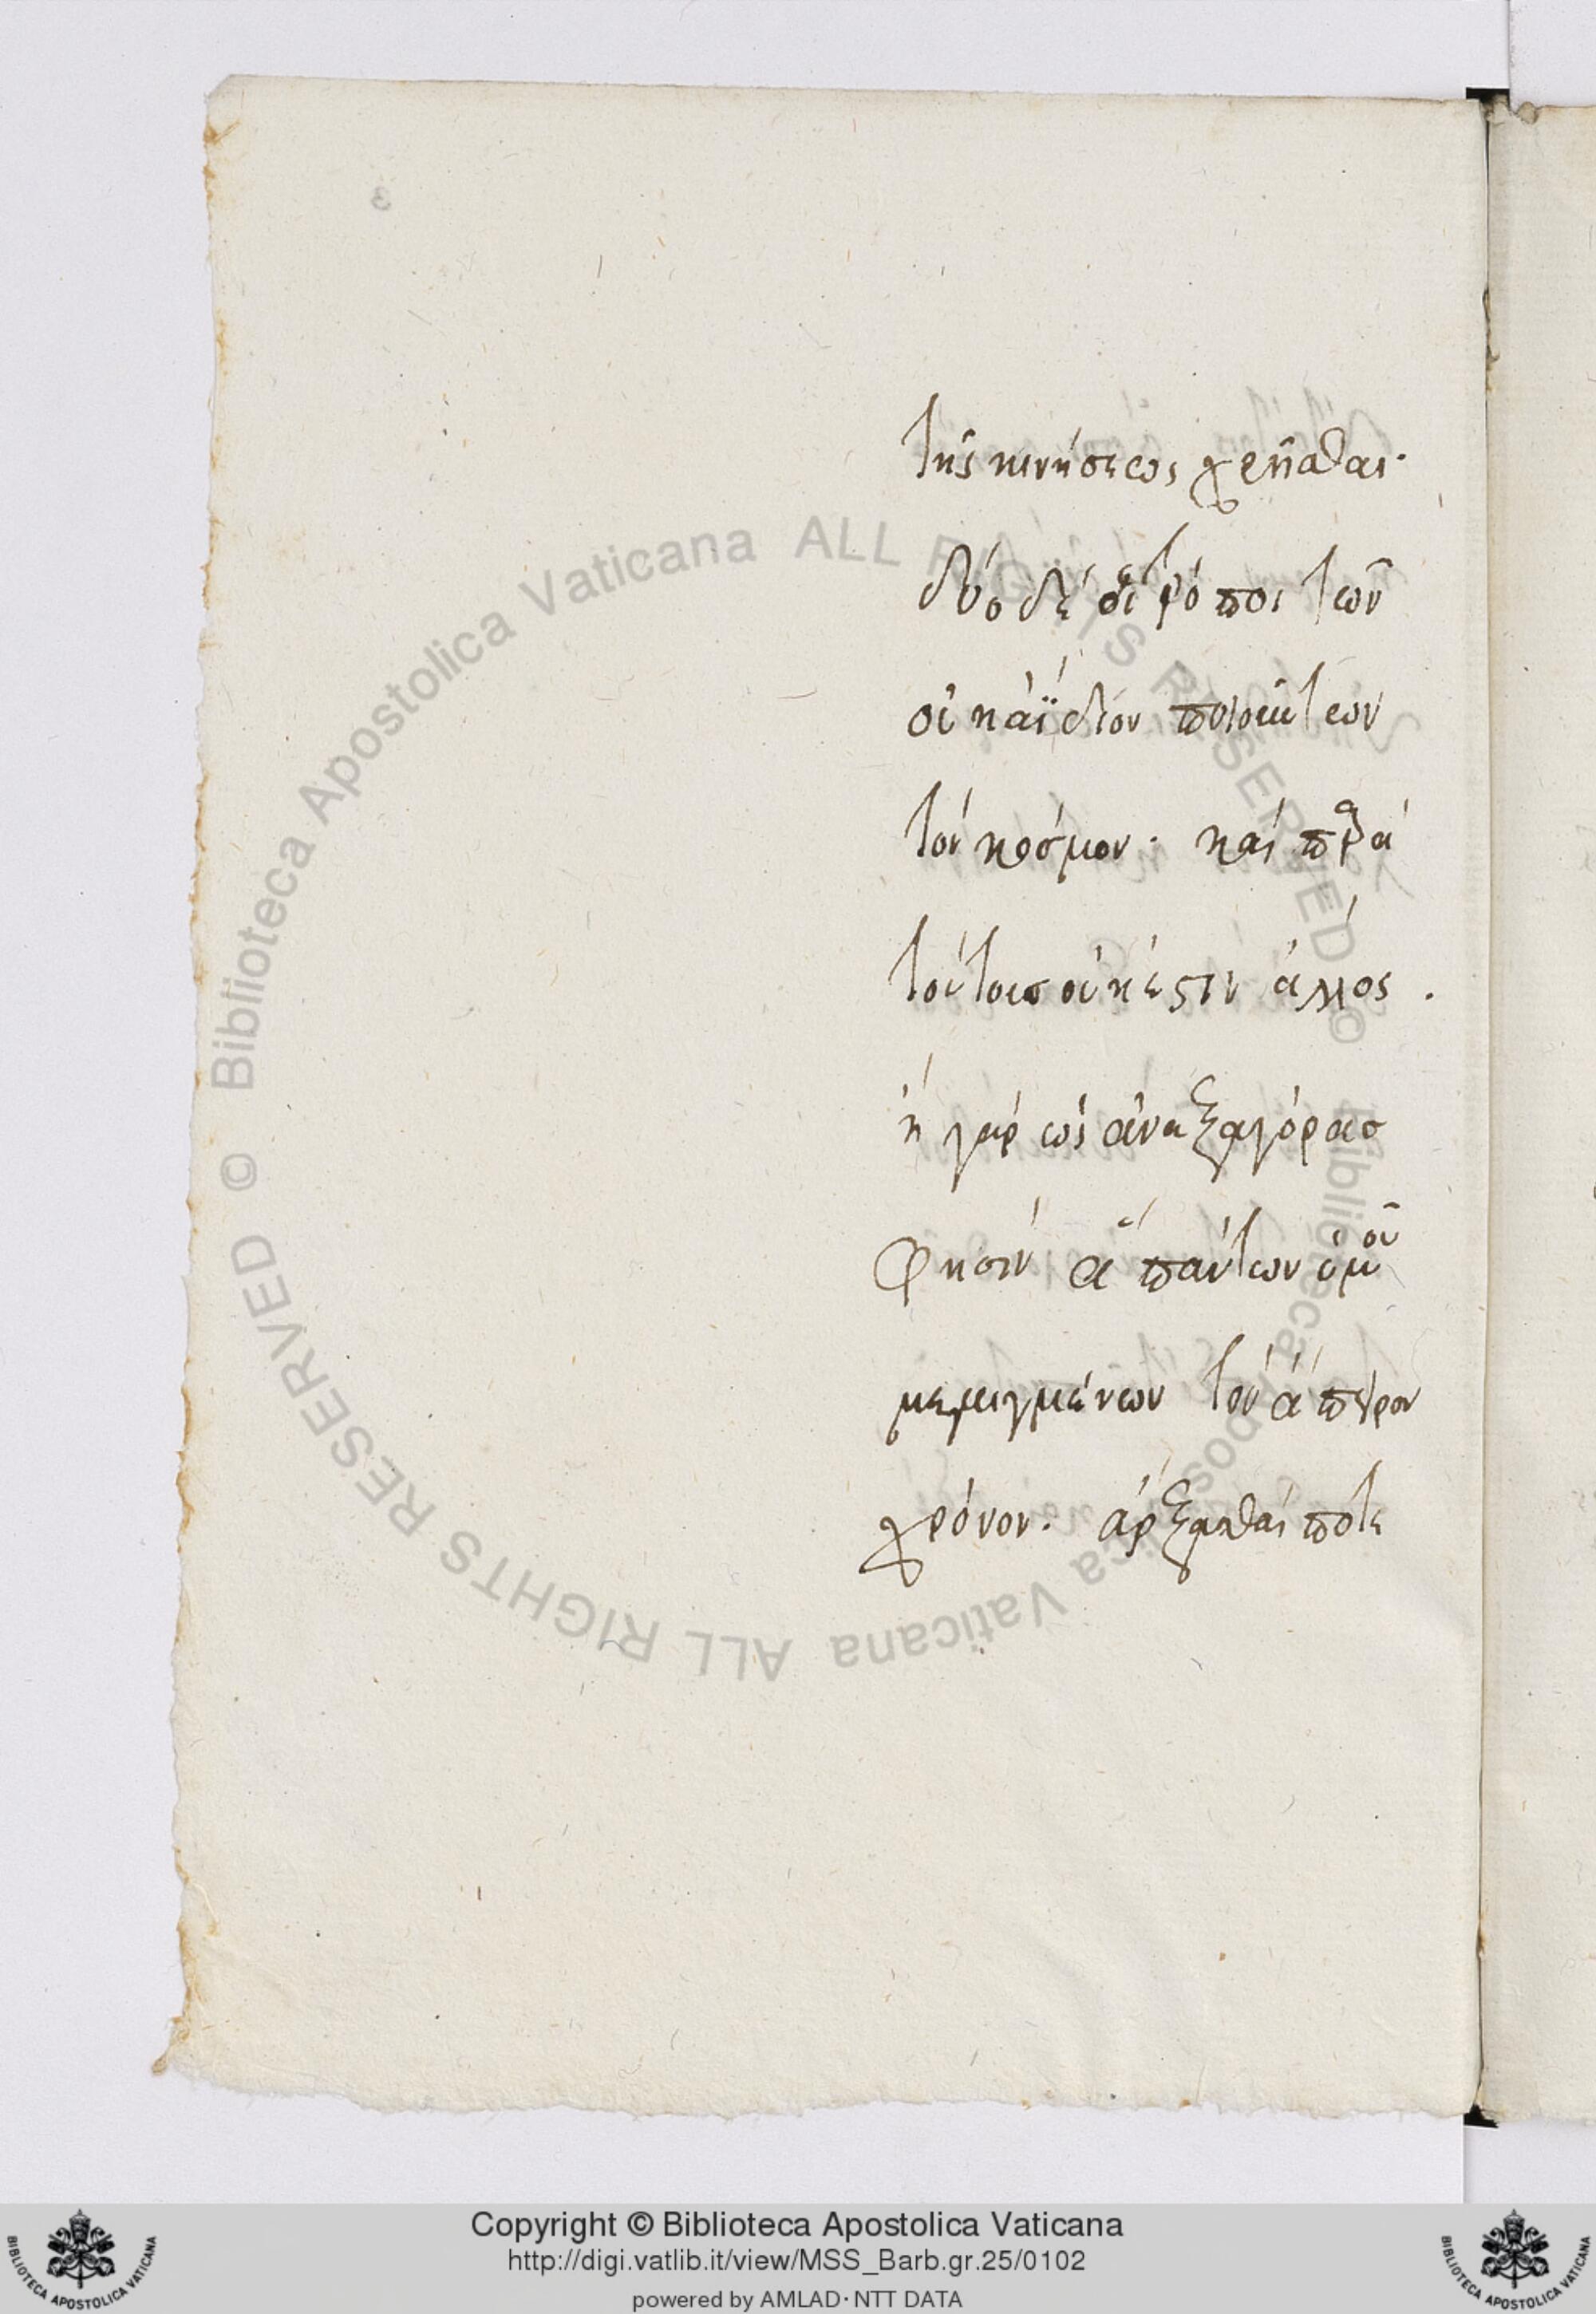 τῆς κινήσεως χρῆσθαι·
δύο δὲ οἱ τρόποι τῶν
οὐκ ἀΐδιον ποιούντων
τὸν κόσμον· καὶ παρὰ
τούτοισ οὐκ ἔστιν ἄλλος.
ἢ γὰρ ὡς ἀναξαγόρασ
φησὶν ἁπάντων ὁμοῦ
μεμιγμένων τὸν ἄπειρον
χρόνον. ἄρξασθαί ποτε
© Biblioteca Apostolica Vaticana ALL RIGHTS RESERVED © Biblioteca Apostolica Vaticana ALL RIGHTS RESERVED
Copyright © Biblioteca Apostolica Vaticana
http://digi.vatlib.it/view/MSS_Barb.gr.25/0102
powered by AMLAD·NTT DATA
BIBLIOTECA APOSTOLICA VATICANA
BIBLIOTECA APOSTOLICA VATICANA